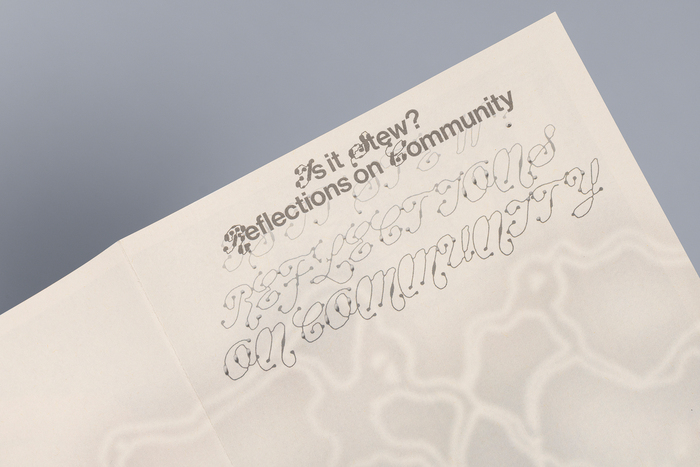 Is it Stew?
Reflections on Community
REFLECTIONS
ON COMMUNITY